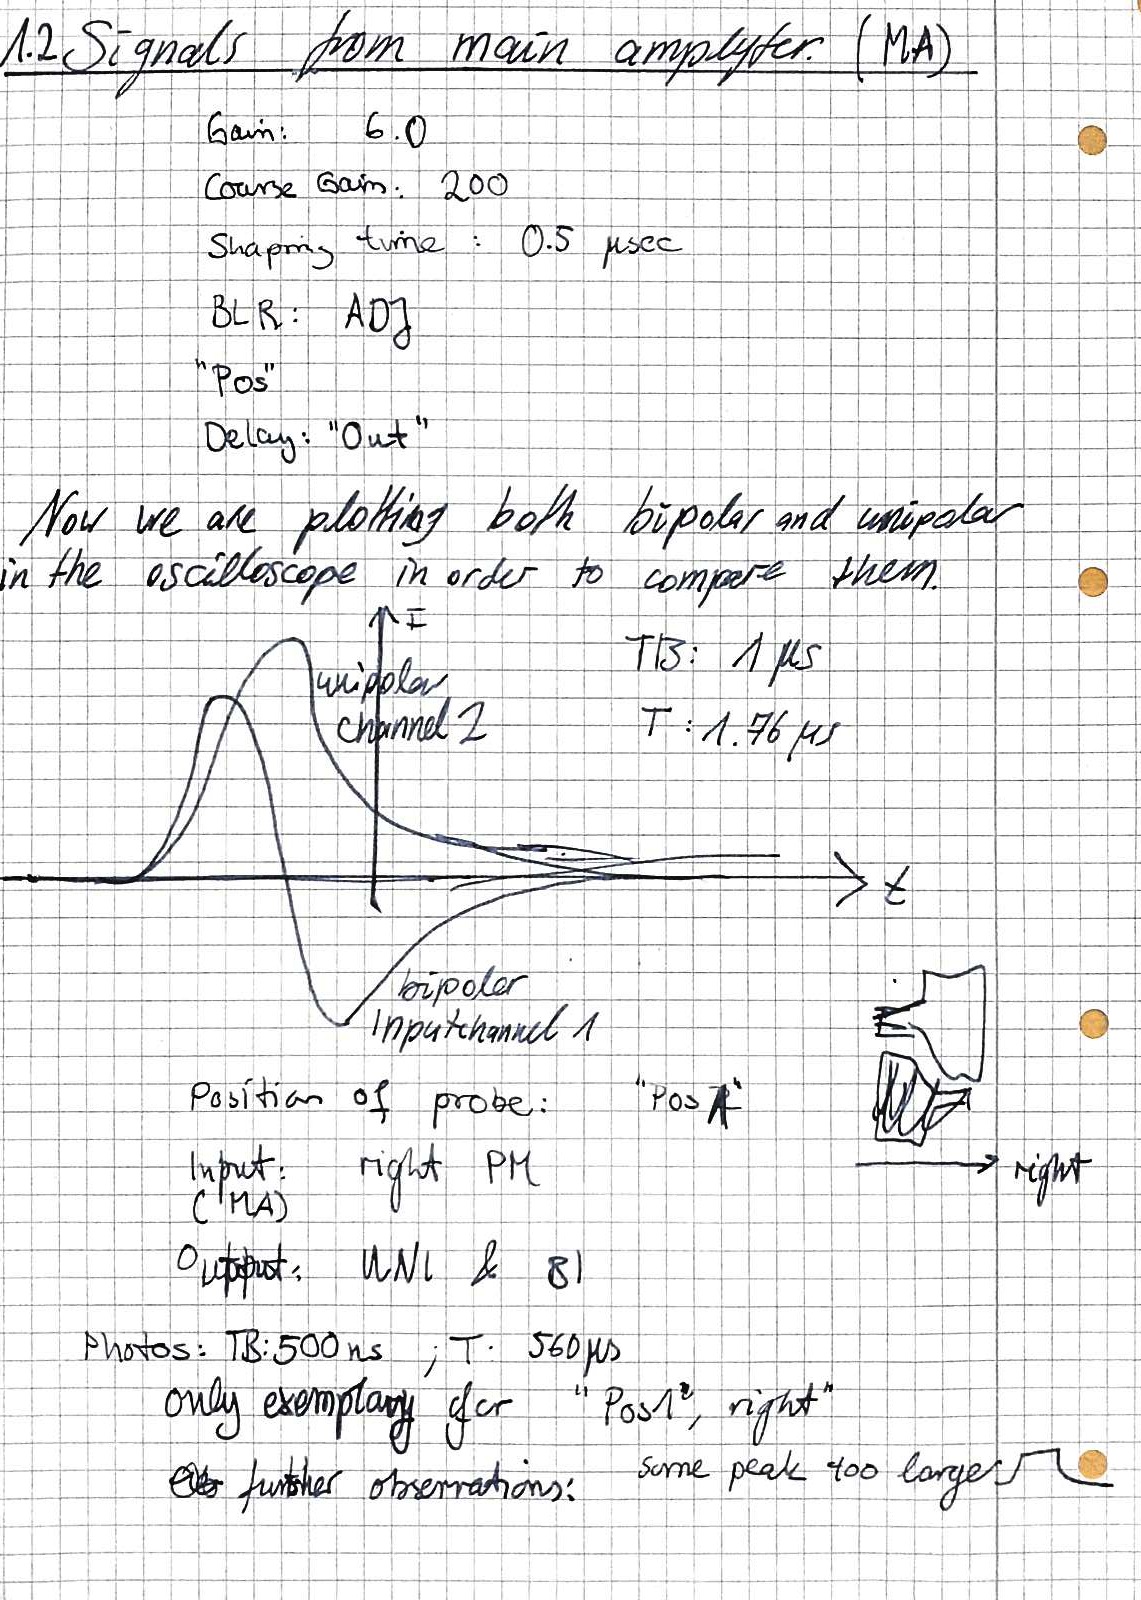 1.2 Signals from main amplyfer. (MA)
Gain: 6.0
Course Gain: 200
Shaping time : 0.5 µsec
BLR: ADJ
"Pos"
Delay: "Out"
Now we are plotting both bipolar and unipolar
in the oscilloscope in order to compare them.
I
unipolar
channel 2
TB: 1 µs
T : 1.76 µs
t
bipolar
Inputchannel 1
Position of probe: "Pos 1"
right
Input: right PM
(MA)
Output: UNI & BI
Photos: TB: 500 ns ; T: 560 µs
only exemplary for "Pos1", right"
further observations: some peak too large